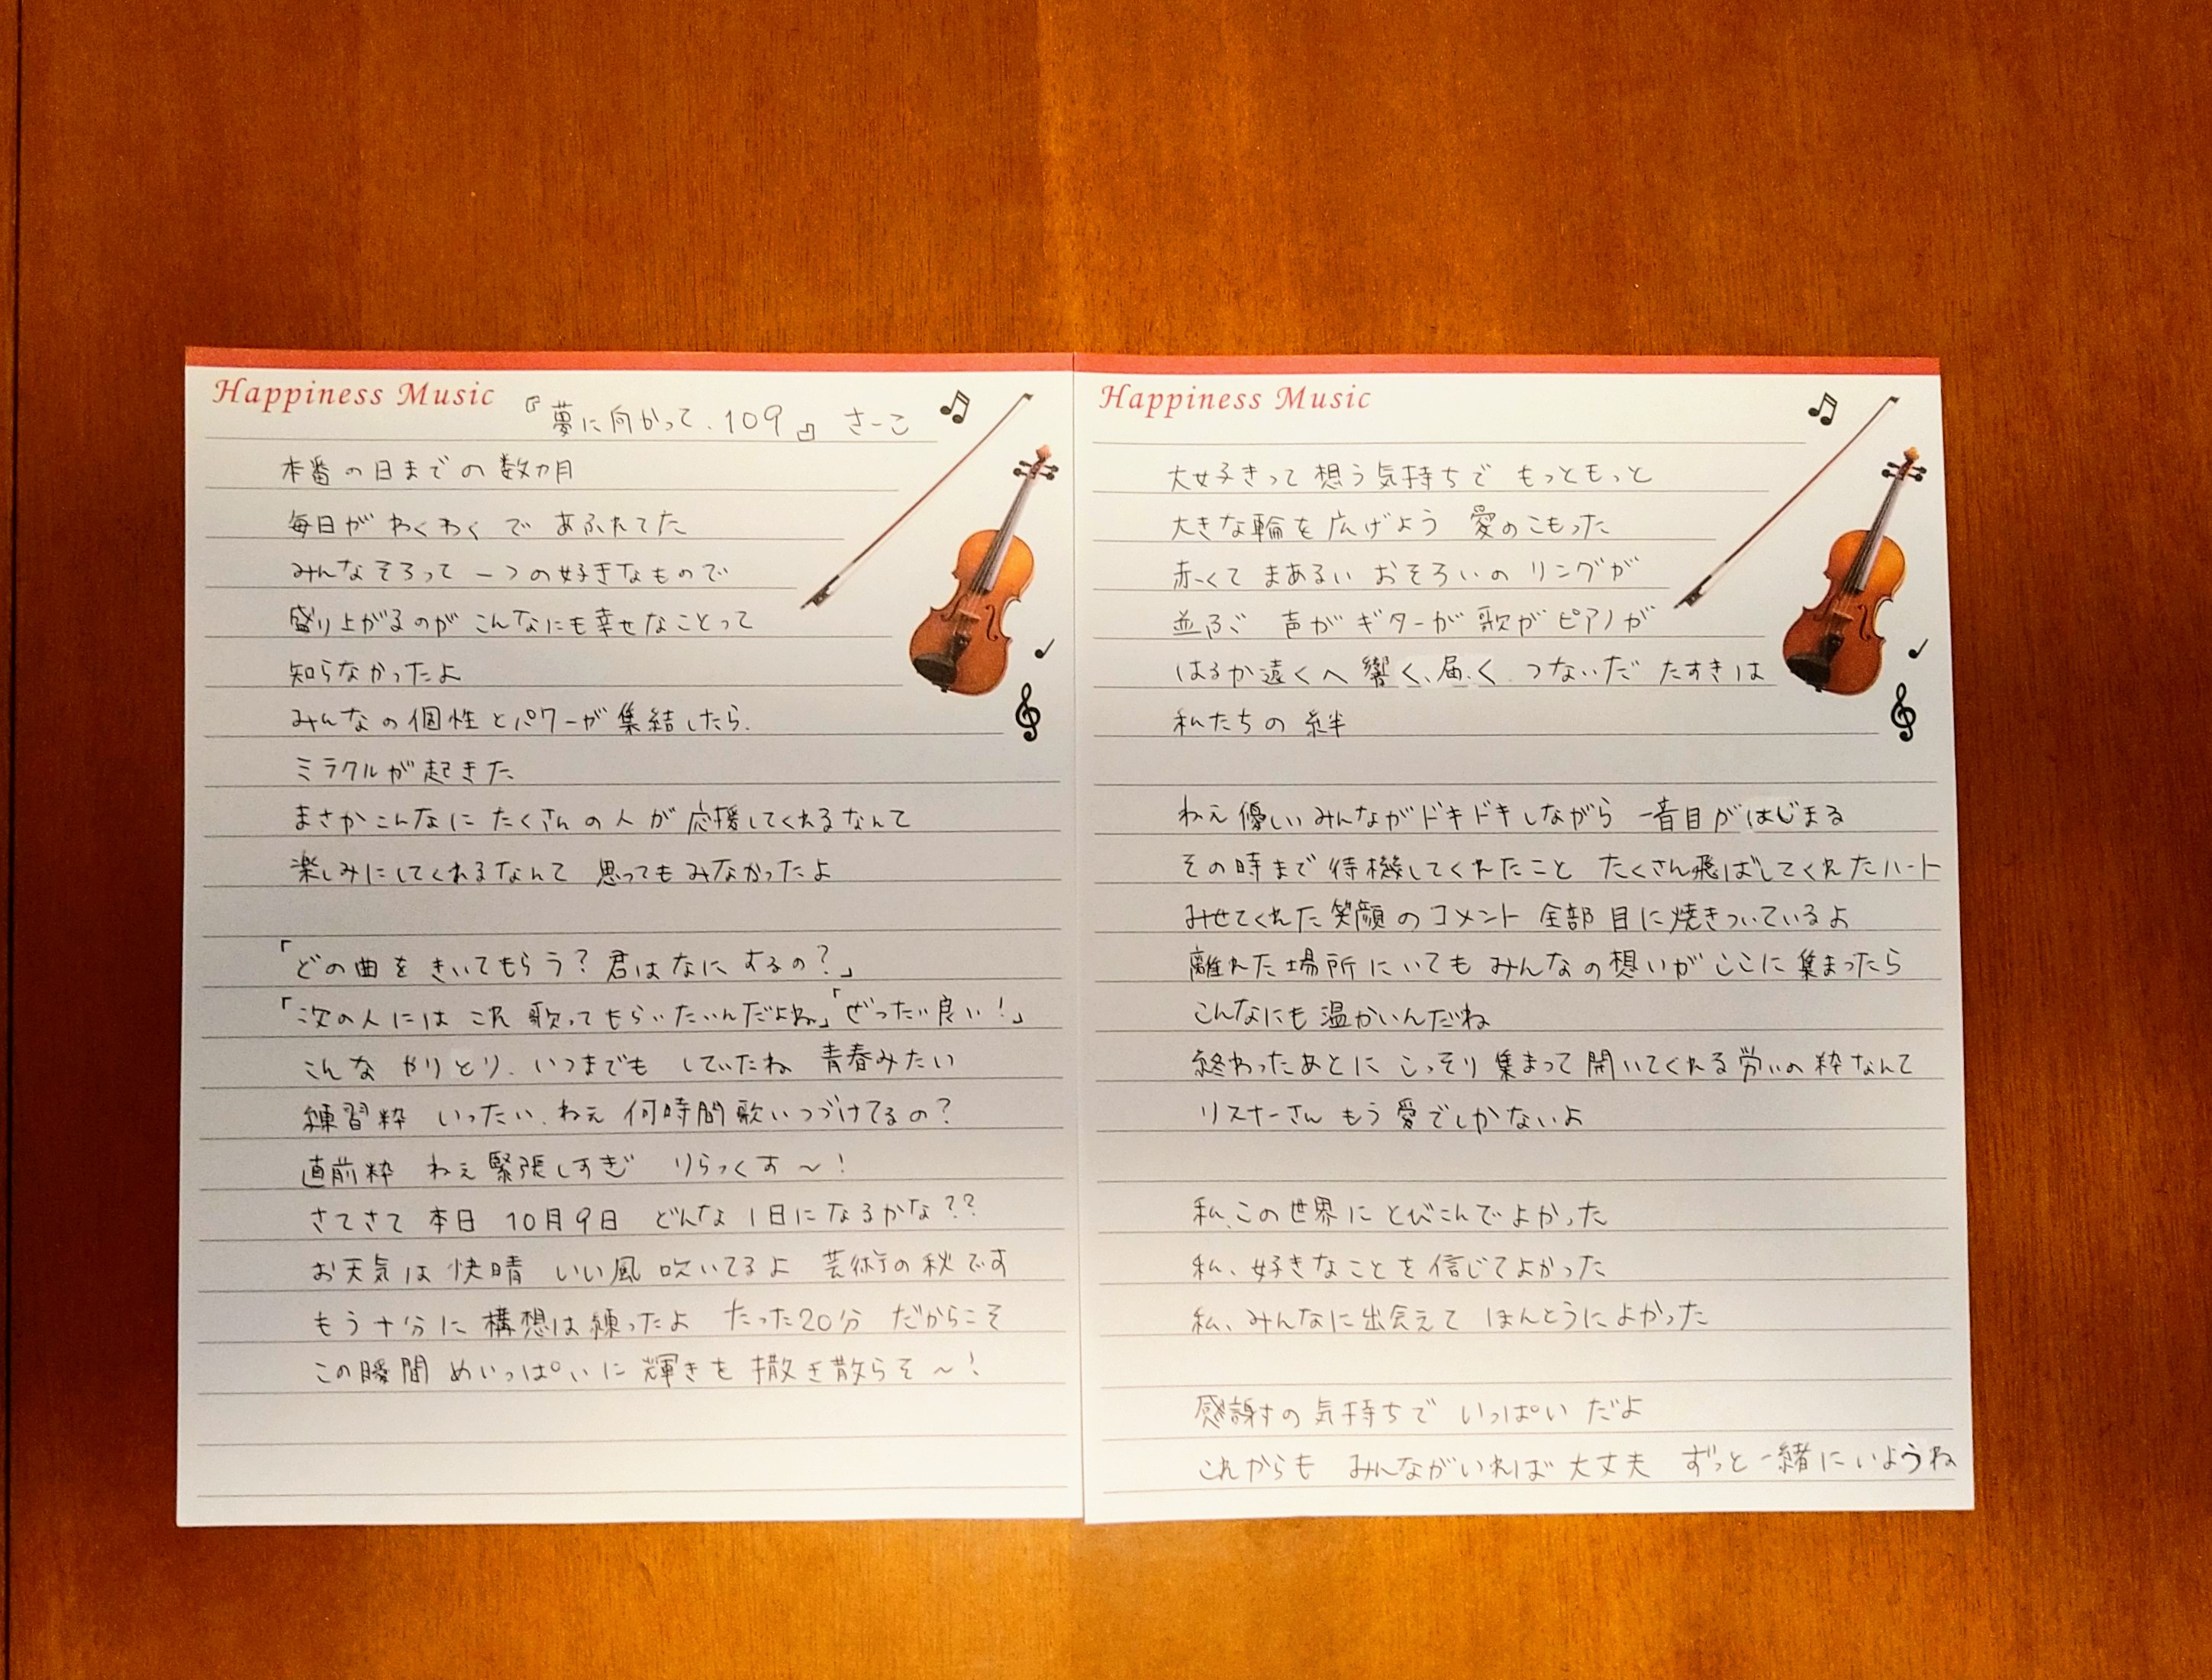 Happiness Music
『夢に向かって、109』 さーこ
本番の日までの数カ月
毎日が わくわく で あふれてた
みんなそろって 一つの好きなもので
盛り上がるのが こんなにも幸せなことって
知らなかったよ
みんなの個性とパワーが集結したら、
ミラクルが起きた
まさかこんなに たくさんの人が 応援してくれるなんて
楽しみにしてくれるなんて 思ってもみなかったよ
「どの曲を きいてもらう？君はなに するの？」
「次の人には これ 歌ってもらいたいんだよね」「ぜったい良い！」
こんな やりとり、いつまでも していたね 青春みたい
練習枠 いったい、ねぇ 何時間歌いつづけてるの？
直前枠 ねぇ緊張しすぎ りらっくす～！
さてさて 本日 10月9日 どんな 1日に なるかな？？
お天気は 快晴 いい風 吹いてるよ 芸術の秋です
もう十分に 構想は練ったよ たった20分 だからこそ
この瞬間 めいっぱいに 輝きを 撒き散らそ～！
Happiness Music
大好きって 想う気持ちで もっともっと
大きな輪を広げよう 愛のこもった
赤くて まあるい おそろいの リングが
並ぶ 声がギターが歌がピアノが
はるか遠くへ響く、届く つないだ たすきは
私たちの 絆
ねえ 優しいみんながドキドキしながら 一音目がはじまる
その時まで待機してくれたこと たくさん飛ばしてくれたハート
みせてくれた笑顔のコメント 全部 目に焼きついているよ
離れた場所にいても みんなの想いが ここに集まったら
こんなにも温かいんだね
終わったあとに こっそり集まって開いてくれる労いの枠なんて
リスナーさん もう愛でしかないよ
私、この世界に とびこんでよかった
私、好きなことを信じてよかった
私、みんなに出会えて ほんとうによかった
感謝の気持ちで いっぱい だよ
これからも みんながいれば大丈夫 ずっと一緒にいようね